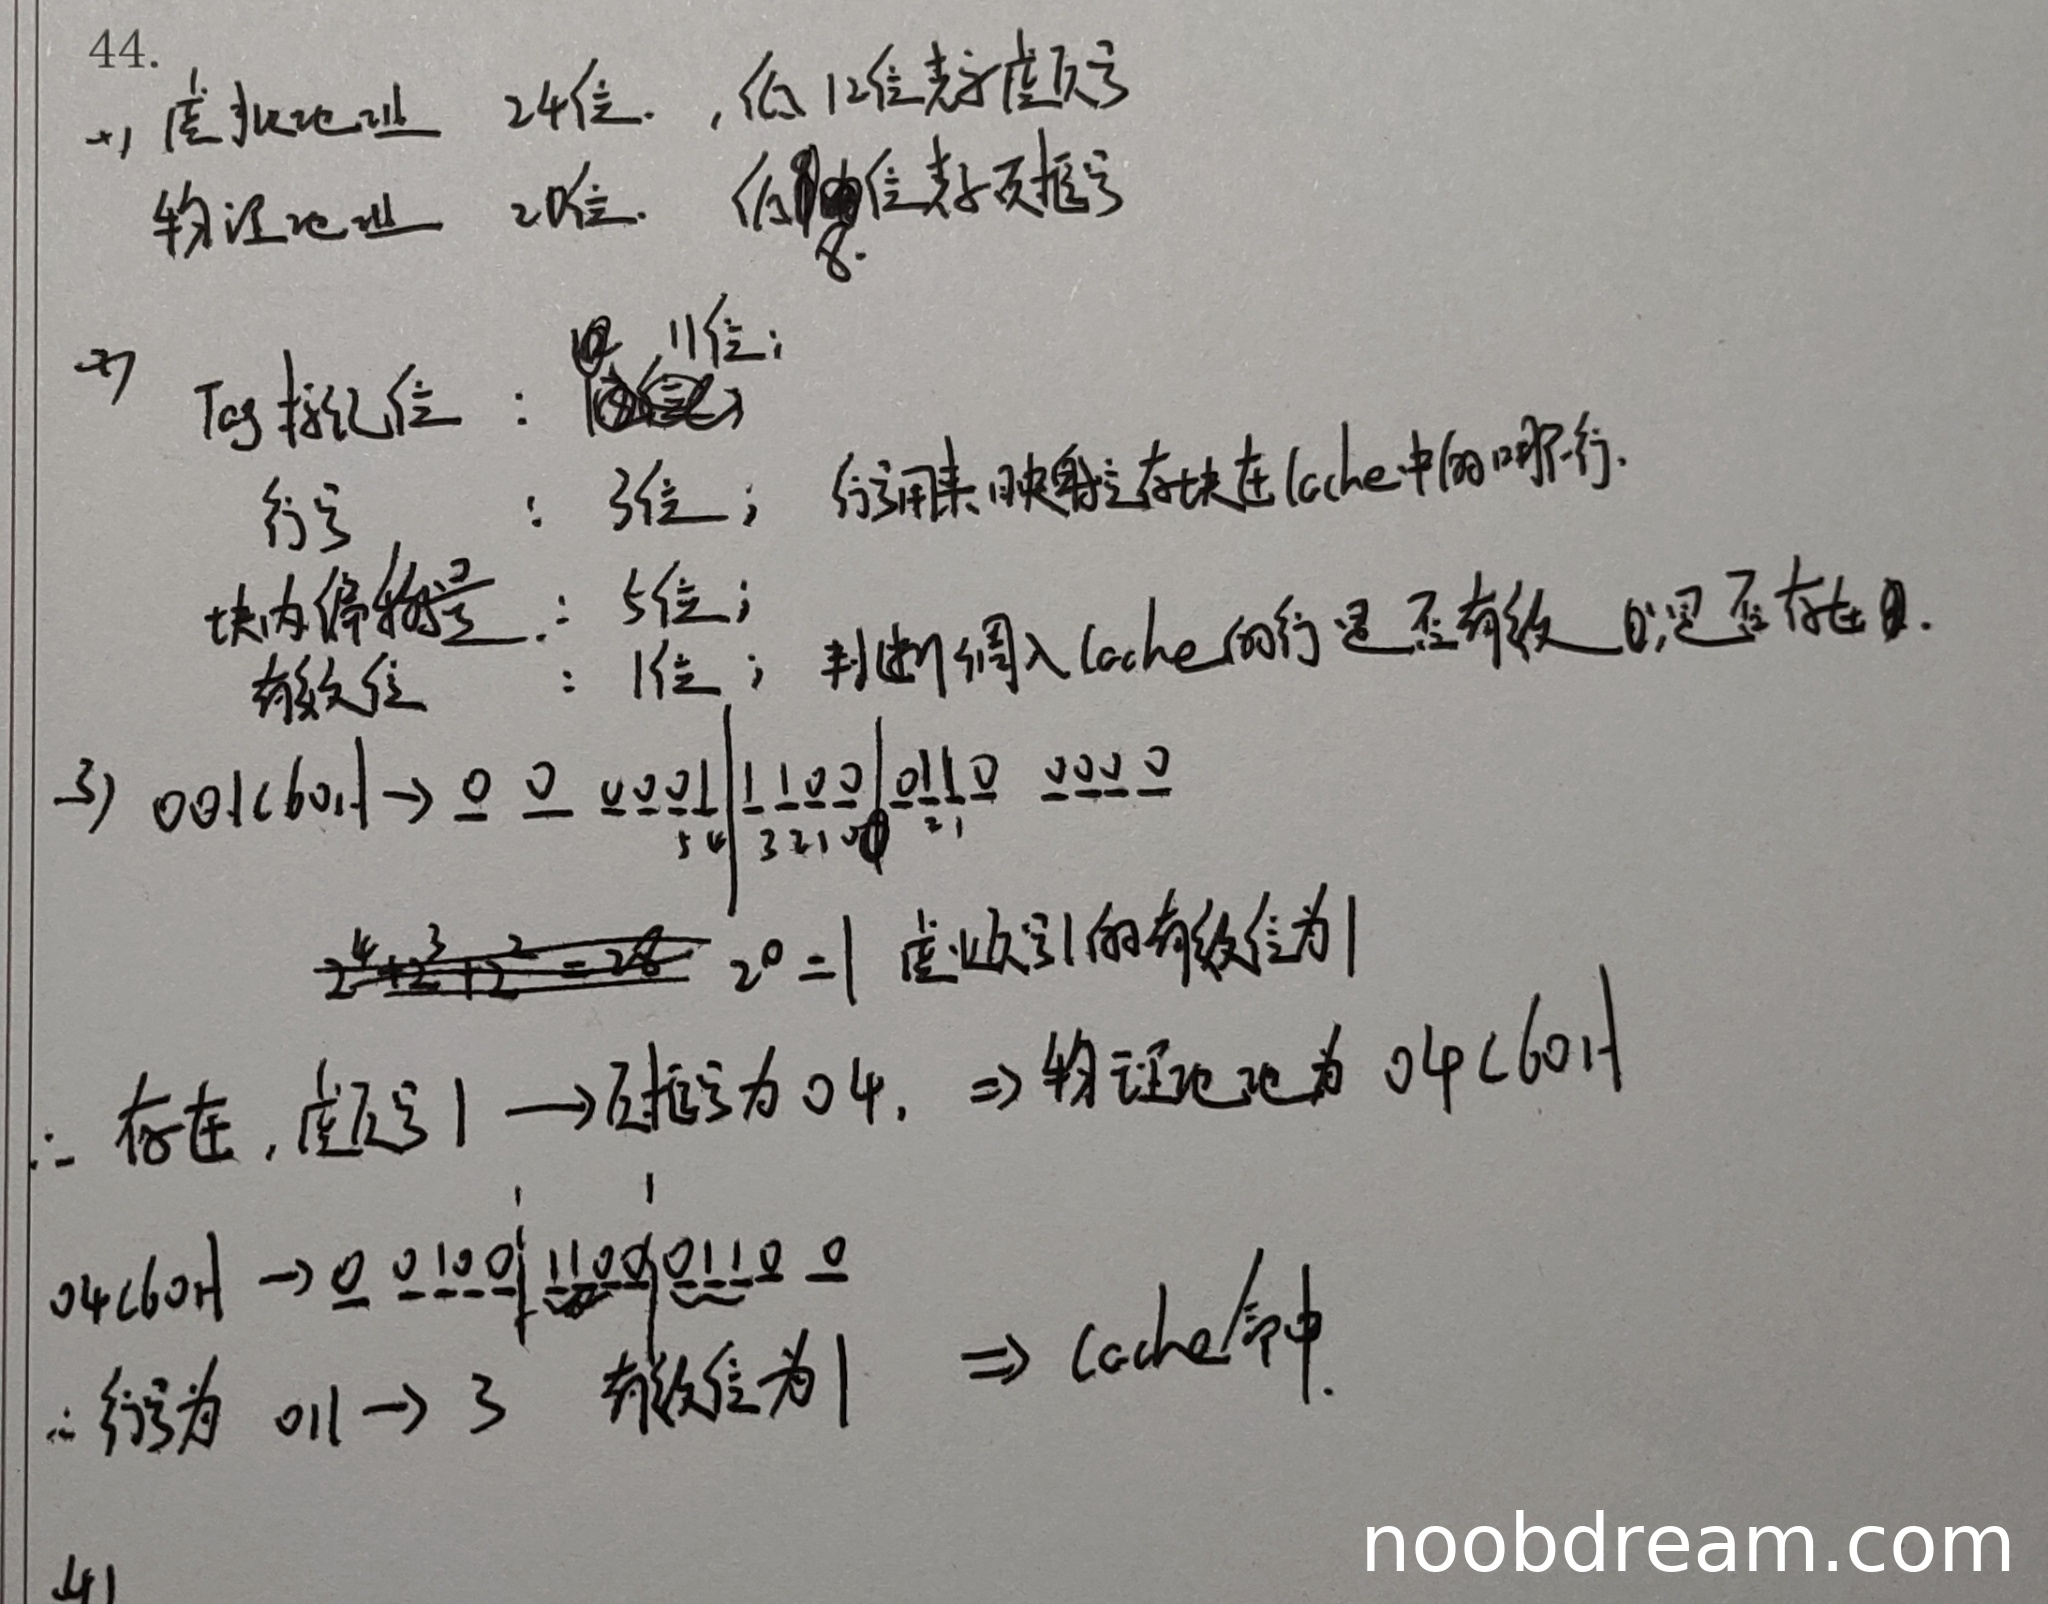 44.
(1) 虚拟地址 24位. , 低12位表示虚页号
物理地址 20位. 低 位表示页框号
8.
(2)
11位;
Tag标记位 :
行号 : 3位 ; 行号用来映射主存块在Cache中的哪行.
块内偏移量 : 5位 ;
有效位 : 1位 ; 判断调入Cache的行是否有效 是否存在
3) 001C60H → 0 0 0001 | 1100 | 0110 0000
5 4 3 2 1 0 2 1
2^4+2^3+2^2=28 2^0=1 虚页号1的有效位为1
∴ 存在, 虚页号1 → 页框号为04. ⇒ 物理地址为 04C60H
04C60H → 0 0100 1100 0110 0
∴ 行号为 011 → 3 有效位为1 ⇒ Cache命中.
(4)
noobdream.com